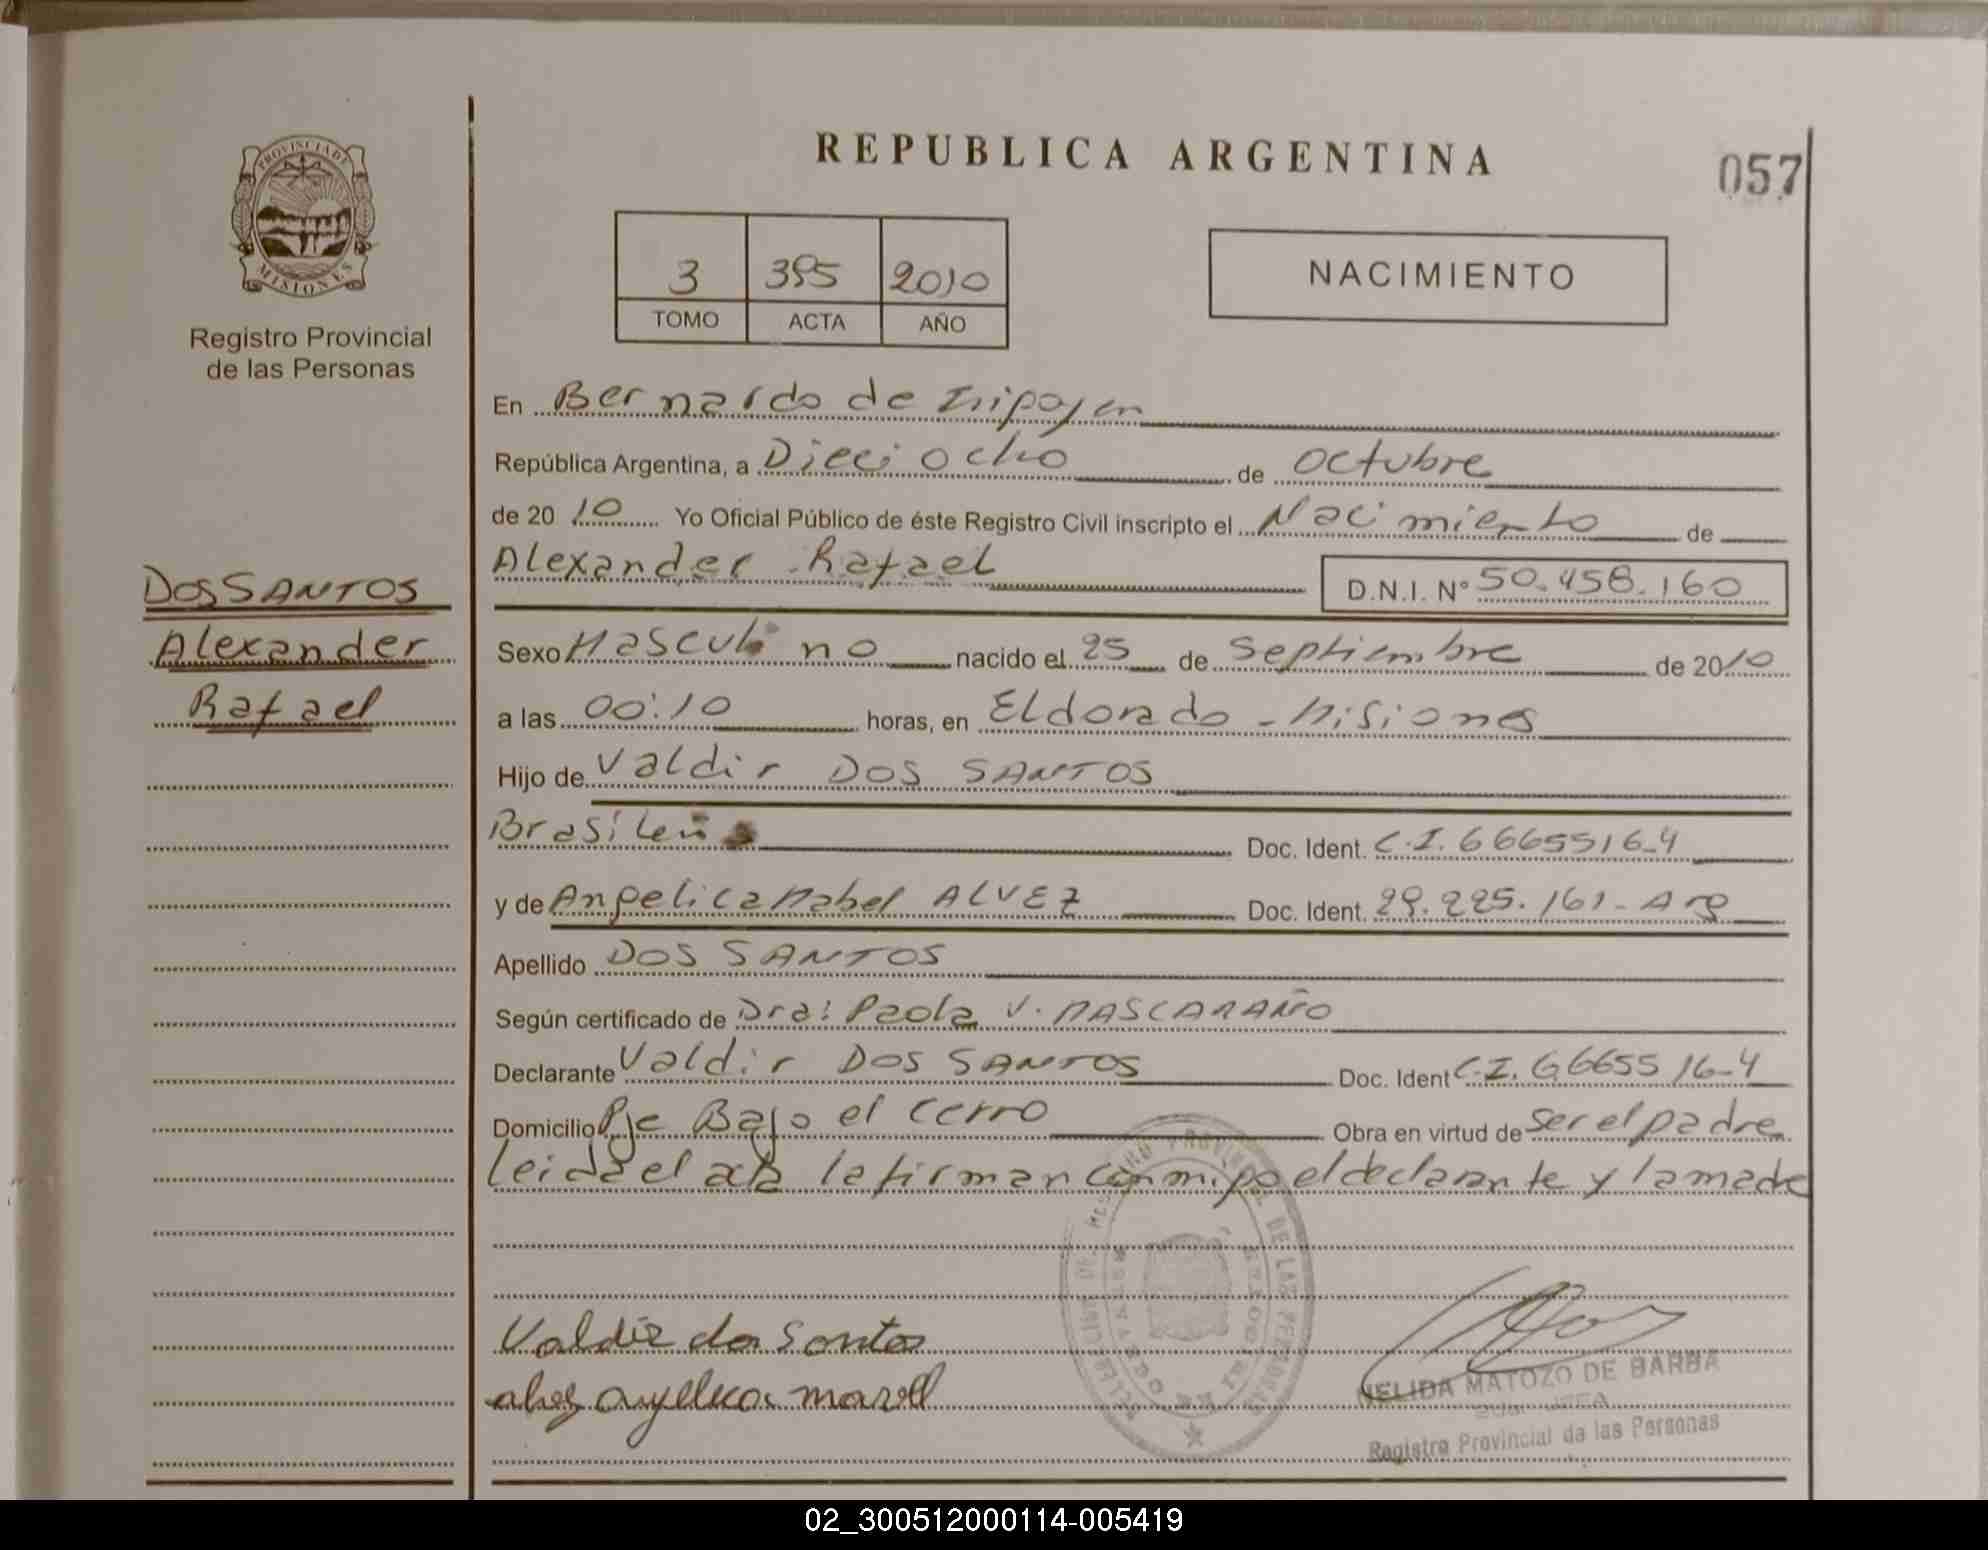 REPUBLICA ARGENTINA
057
PROVINCIA DE
MISIONES
Registro Provincial
de las Personas
3 395 2010
TOMO ACTA AÑO
NACIMIENTO
En Bernardo de Irigoyen
República Argentina, a Dieci Ocho de octubre
de 20 10 Yo Oficial Público de éste Registro Civil inscripto el Nacimiento de
Alexander Rafael D.N.I. Nº 50.458.160
DOS SANTOS
Alexander
Rafael
Sexo Masculino nacido el 25 de Septiembre de 2010
a las 00:10 horas, en Eldorado - Misiones
Hijo de Valdir DOS SANTOS
Brasileño Doc. Ident. C.I. 6665516-4
y de Angelica Mabel ALVEZ Doc. Ident. 29.225.161- Arg
Apellido DOS SANTOS
Según certificado de Dra: Paola V. MASCARAÑO
Declarante Valdir DOS SANTOS Doc. Ident C.I. 6665516-4
Domicilio Pje Bajo el Cerro Obra en virtud de ser el padre
Leida el acta la firman conmigo el declarante y la madre
Valdir dos Santos
alvez angelica mavel
NELIDA MATOZO DE BARBA
Registro Provincial de las Personas
02_300512000114-005419